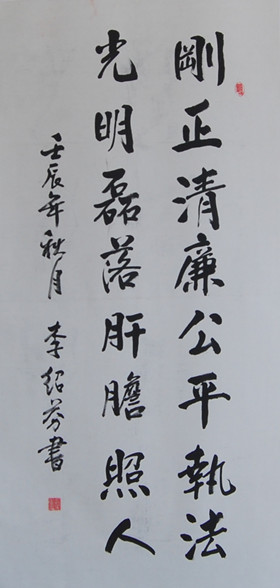 剛正清廉公平執法
光明磊落肝膽照人
壬辰年秋月 李紹芬書